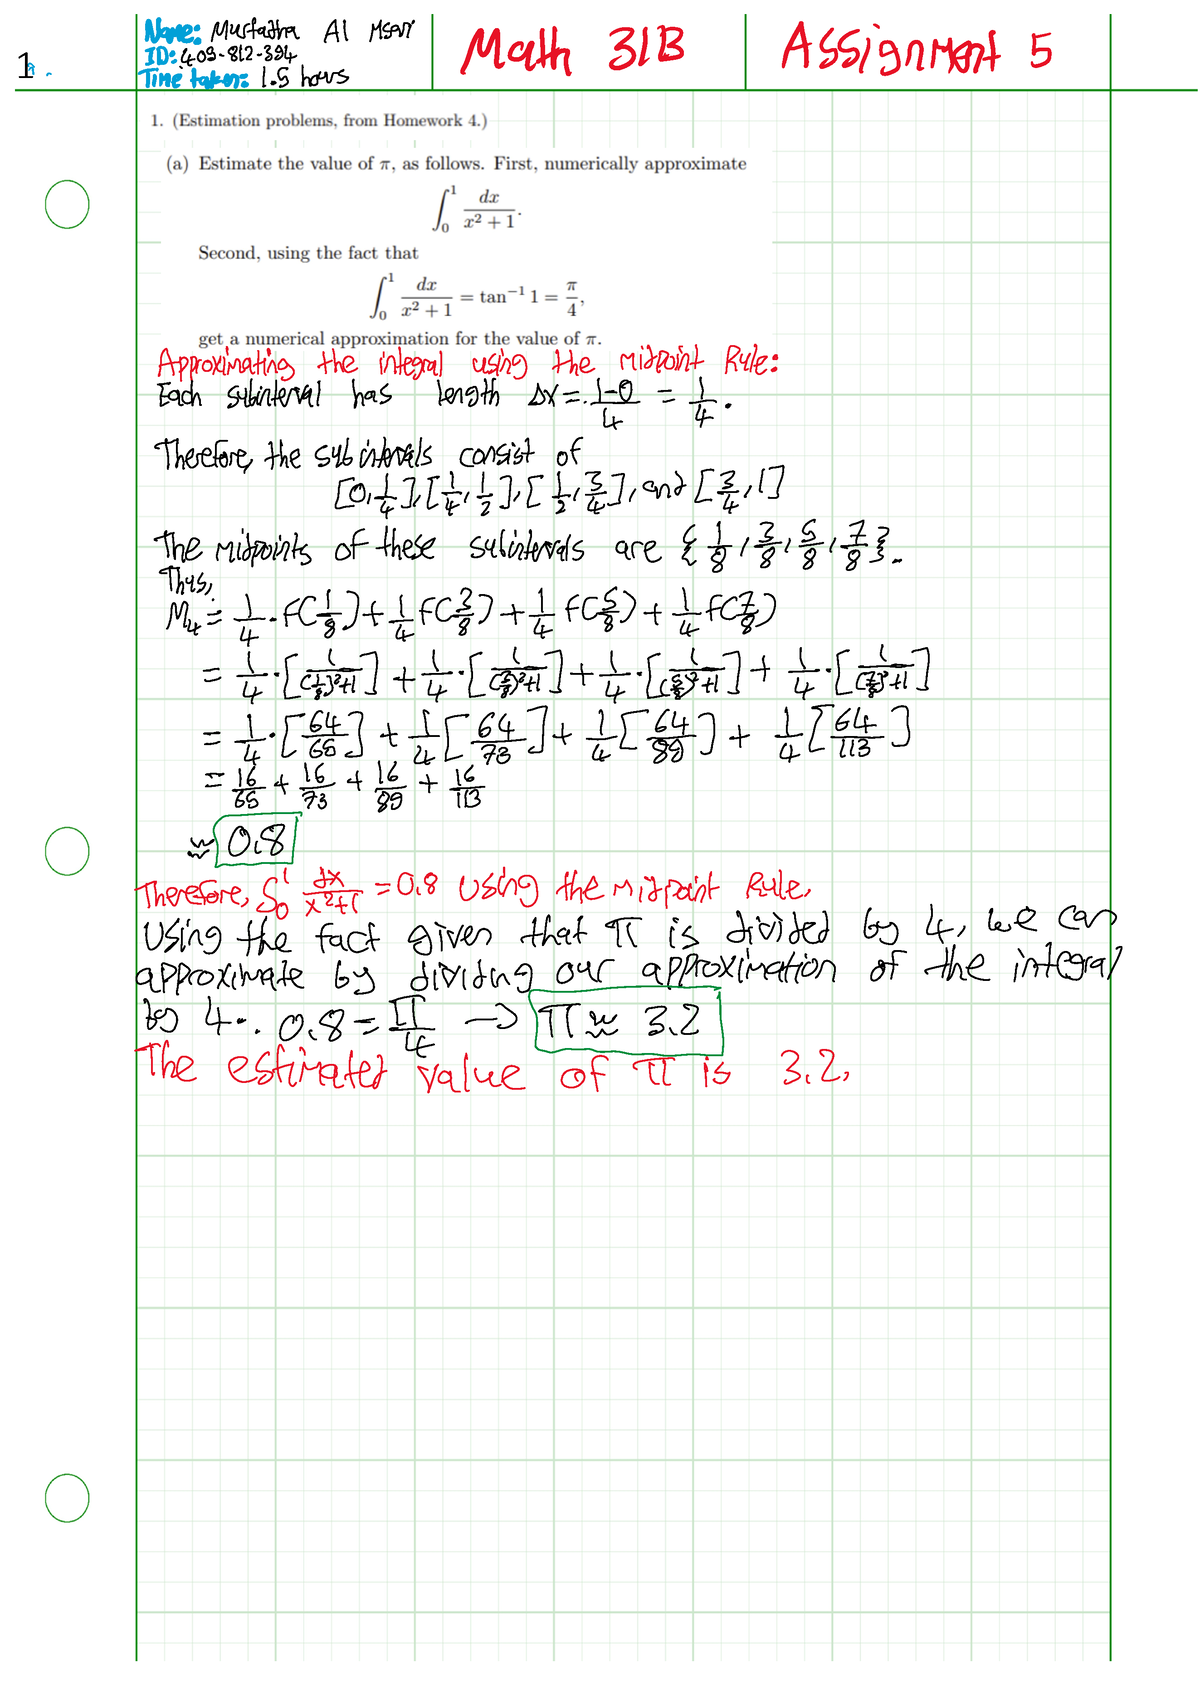 1.
Name: Murtadha Al Msari
ID: 409-812-394
Time taken: 1.5 hours
Math 31B
Assignment 5
1. (Estimation problems, from Homework 4.)
(a) Estimate the value of π, as follows. First, numerically approximate
∫₀¹ dx/(x² + 1).
Second, using the fact that
∫₀¹ dx/(x² + 1) = tan⁻¹ 1 = π/4,
get a numerical approximation for the value of π.
Approximating the integral using the midpoint Rule:
Each subinterval has length Δx = 1-0/4 = 1/4.
Therefore, the subintervals consist of
[0,1/4],[1/4,1/2],[1/2,3/4], and [3/4,1]
The midpoints of these subintervals are {1/8, 3/8, 5/8, 7/8}.
Thus,
M₄ = 1/4 · f(1/8) + 1/4 f(3/8) + 1/4 f(5/8) + 1/4 f(7/8)
= 1/4 · [1/((1/8)²+1)] + 1/4 · [1/((3/8)²+1)] + 1/4 · [1/((5/8)²+1)] + 1/4 · [1/((7/8)²+1)]
= 1/4 · [64/65] + 1/4 [64/73] + 1/4 [64/89] + 1/4 [64/113]
= 16/65 + 16/73 + 16/89 + 16/113
≈ 0.8
Therefore, ∫₀¹ dx/(x²+1) = 0.8 using the midpoint Rule.
Using the fact given that π is divided by 4, we can
approximate by dividing our approximation of the integral
by 4. 0.8 = π/4 → π ≈ 3.2
The estimated value of π is 3.2.